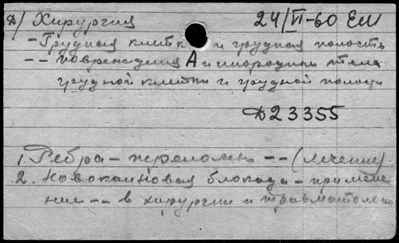 Д/ Хирургия 24/VI-60 ЕМ
- Грудная клетка и грудная полость
- - повреждения А и инородные тела
грудной клетки и грудной полости
Д23355
1. Ребра - переломы -- (лечение)
2. Новокаиновая блокада - примене
ние -- в хирургии и травматологии